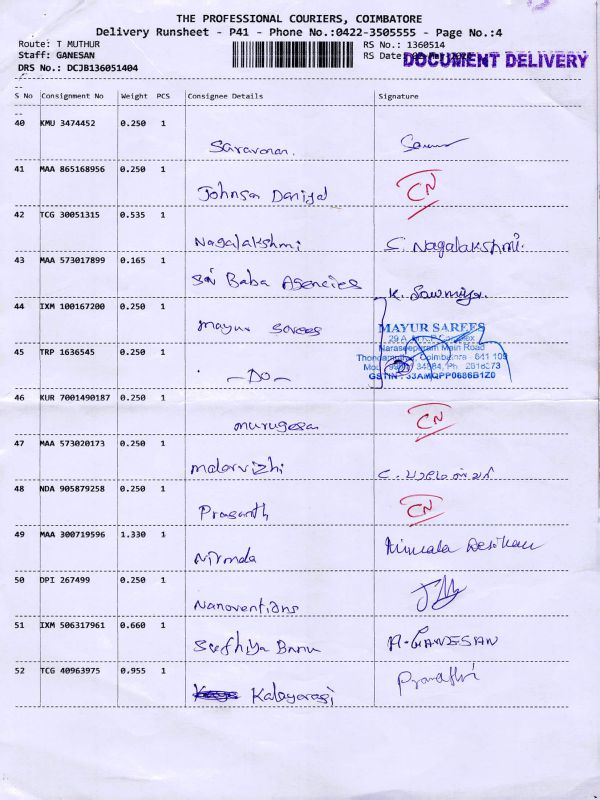 THE PROFESSIONAL COURIERS, COIMBATORE
Delivery Runsheet - P41 - Phone No.:0422-3505555 - Page No.:4
Route: T MUTHUR
Staff: GANESAN
DRS No.: DCJB136051404
RS No.: 1360514
RS Date:
DOCUMENT DELIVERY
S No Consignment No Weight PCS Consignee Details Signature
40 KMU 3474452 0.250 1
Saravanan.
41 MAA 865168956 0.250 1
Johnson Daniyel CN
42 TCG 30051315 0.535 1
Nagalakshmi S. Nagalakshmi.
43 MAA 573017899 0.165 1
Sri Baba Agencies K. Sowmiya.
44 IXM 100167200 0.250 1
Mayur Sarees
MAYUR SAREES
Naraseepuram Main Road
Coimbatore - 641 109
GSTIN : 33AMQPP0686B1Z0
45 TRP 1636545 0.250 1
-Do-
46 KUR 7001490187 0.250 1
murugesan CN
47 MAA 573020173 0.250 1
malarvizhi
48 NDA 905879258 0.250 1
Prasanth CN
49 MAA 300719596 1.330 1
Nirmala Nirmala Desikan
50 DPI 267499 0.250 1
Nanoventions
51 IXM 506317961 0.660 1
Banu A. GANESAN
52 TCG 40963975 0.955 1
Kalayarasi